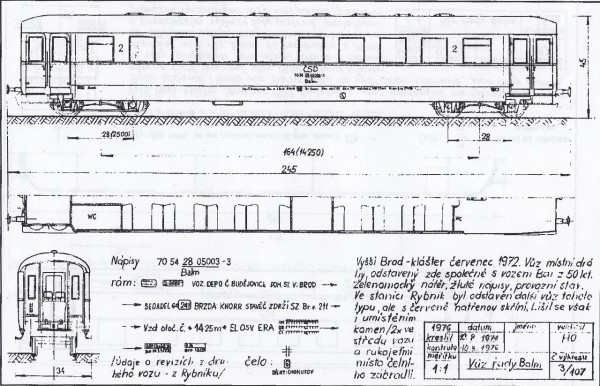 2
2
ČSD
70 54 28 05003-3
Balm
45
28(2500)
28
164(14250)
245
WC
WC
Nápisy 70 54 28 05003-3
Balm
rám:
VOZ. DEPO Č. BUDĚJOVICE DOM. ST. V. BROD
SEDADEL 64 BRZDA KNORR
Vzd oloč. č. 14.25m EL OSV ERA
Údaje o revizích z dru-
hého vozu - z Rybníku/
čelo: 6
34
Vyšší Brod - klášter červenec 1972. Vůz místní drá
hy, odstavený zde společně s vozem Bai z 50 let.
Zelenamodrý nátěr, žluté nápisy, provozní stav.
Ve stanici Rybník byl odstaven další vůz tohoto
typu, ale s červeně natřenou skříní. Lišil se však
i umístěním
kamen/2x ve
středu vozu
a rukojeťmi
místo čelní-
ho zábradlí.
1976 datum jméno velikost
kreslil HO
kontrola č. výkresu
měřítko
1:1
Vůz řady Balm
3/107